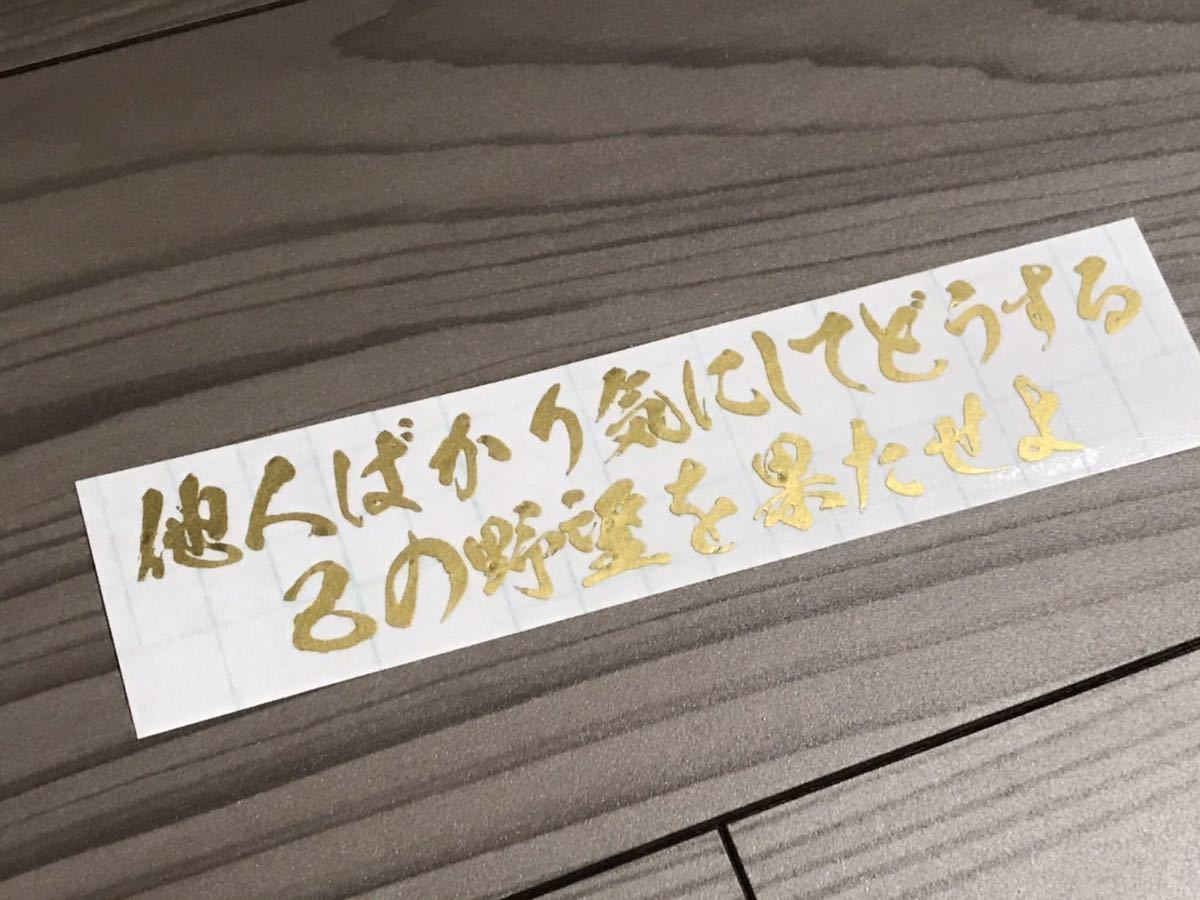 他人ばかり気にしてどうする
己の野望を果たせよ